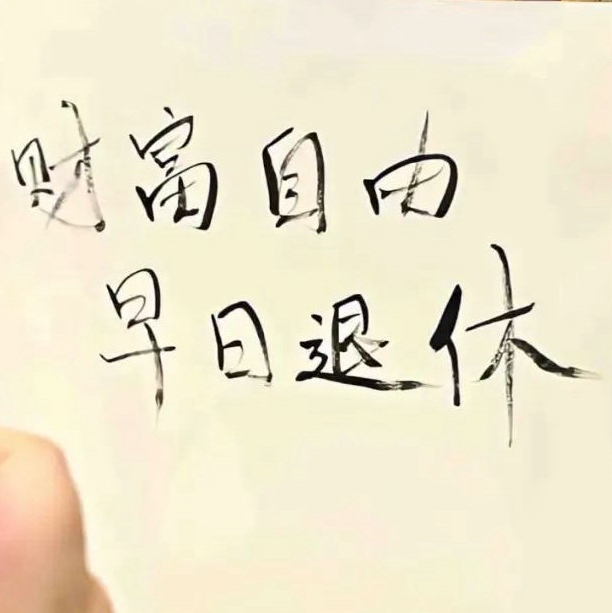 财富自由
早日退休